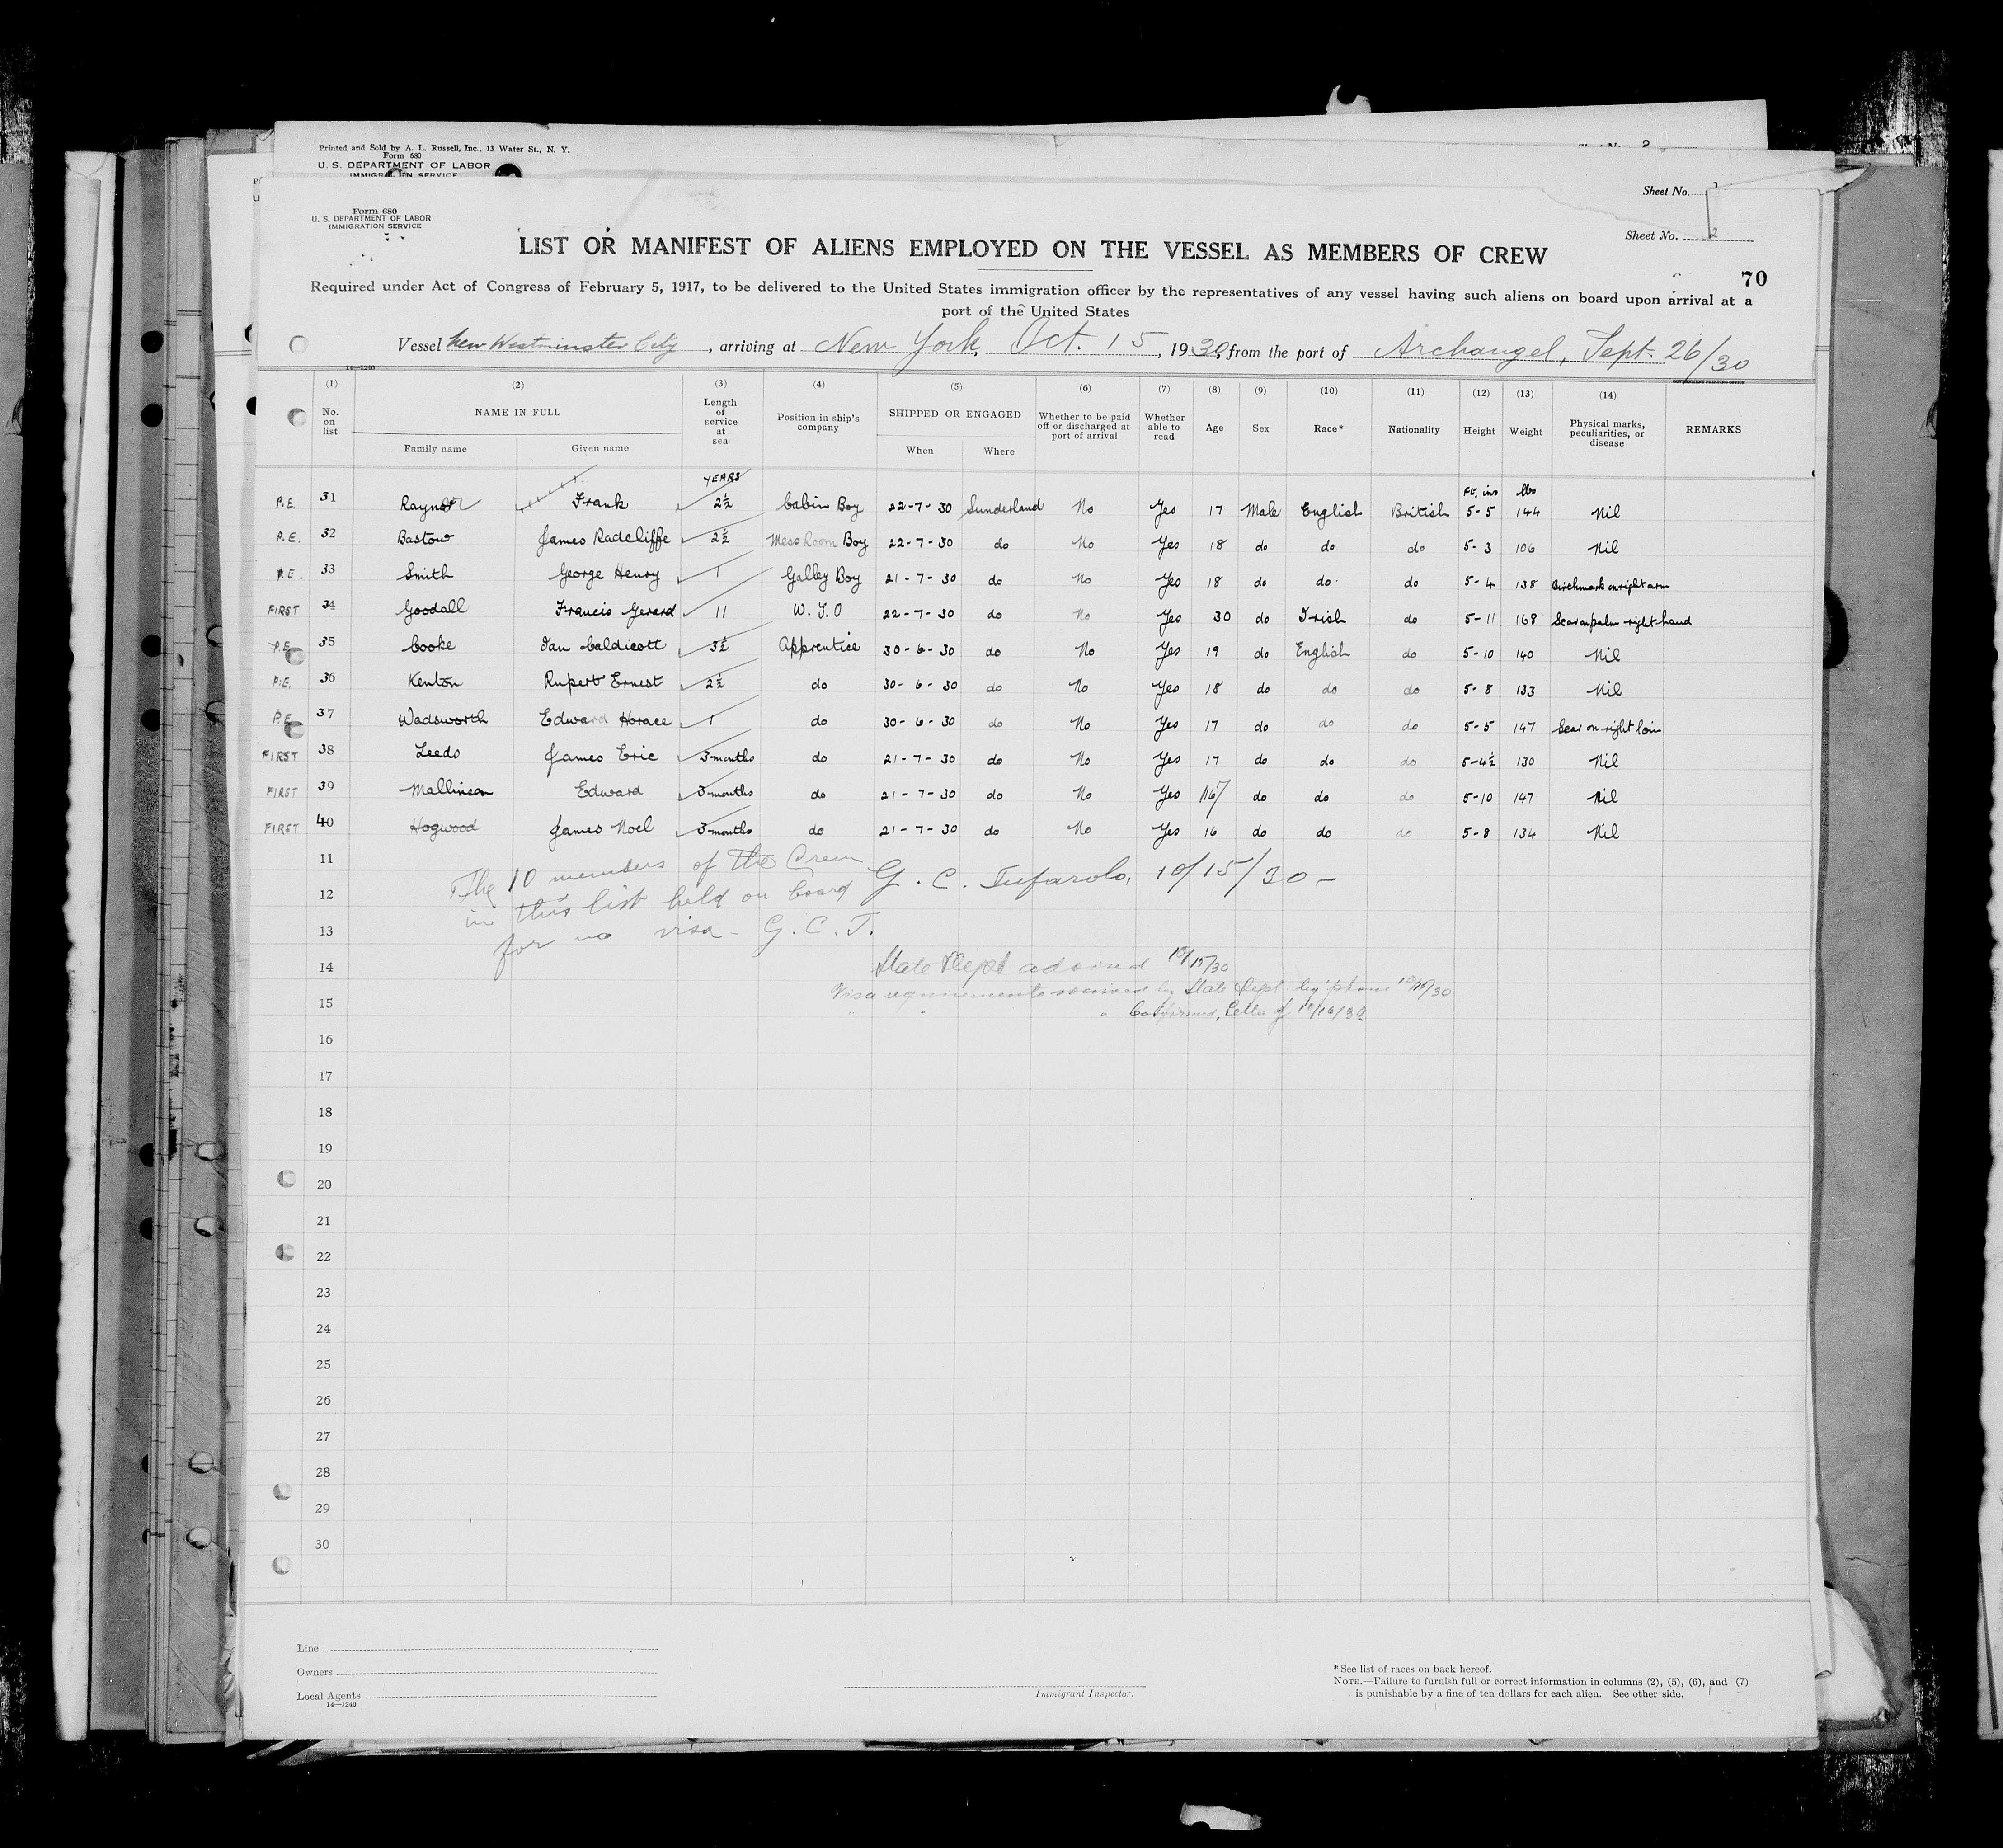 Printed and Sold by A. L. Russell, Inc., 13 Water St., N. Y.
Form 680
U. S. DEPARTMENT OF LABOR
IMMIGRATION SERVICE
Sheet No.
Form 680
U. S. DEPARTMENT OF LABOR
IMMIGRATION SERVICE
Sheet No. 2
LIST OR MANIFEST OF ALIENS EMPLOYED ON THE VESSEL AS MEMBERS OF CREW
70
Required under Act of Congress of February 5, 1917, to be delivered to the United States immigration officer by the representatives of any vessel having such aliens on board upon arrival at a
port of the United States
Vessel New Westminster City, arriving at New York, Oct. 15, 1930, from the port of Archangel, Sept. 26/30
14—1240
GOVERNMENT PRINTING OFFICE
(1) (2) (3) (4) (5) (6) (7) (8) (9) (10) (11) (12) (13) (14)
No. on list NAME IN FULL Length of service at sea Position in ship's company SHIPPED OR ENGAGED Whether to be paid off or discharged at port of arrival Whether able to read Age Sex Race* Nationality Height Weight Physical marks, peculiarities, or disease REMARKS
Family name Given name When Where
YEARS Ft. ins lbs
P.E. 31 Raynor Frank 2½ Cabin Boy 22-7-30 Sunderland No Yes 17 Male English British 5-5 144 Nil
P.E. 32 Bastow James Radcliffe 2½ Mess Room Boy 22-7-30 do No Yes 18 do do do 5-3 106 Nil
P.E. 33 Smith George Henry 1 Galley Boy 21-7-30 do No Yes 18 do do do 5-4 138 Birthmark on right arm
FIRST 34 Goodall Francis Gerard 11 W.T.O 22-7-30 do No Yes 30 do Irish do 5-11 168 Scar on palm right hand
P.E. 35 Cooke Ian Caldicott 3½ Apprentice 30-6-30 do No Yes 19 do English do 5-10 140 Nil
P.E. 36 Kenton Rupert Ernest 2½ do 30-6-30 do No Yes 18 do do do 5-8 133 Nil
P.E. 37 Wadsworth Edward Horace 1 do 30-6-30 do No Yes 17 do do do 5-5 147 Scar on right loin
FIRST 38 Leeds James Eric 3 months do 21-7-30 do No Yes 17 do do do 5-4½ 130 Nil
FIRST 39 Mallinson Edward 3 months do 21-7-30 do No Yes do do do 5-10 147 Nil
FIRST 40 Hogwood James Noel 3 months do 21-7-30 do No Yes 16 do do do 5-8 134 Nil
11
The 10 members of the Crew
12
in this list held on board G. C. Tufarolo, 10/15/30 -
13
for no visa - G. C. T.
14
State Dept advised 10/15/30
15
Visa requirements received by State Dept by 'phone 10/15/30
" " " Confirmed, Letter of 10/16/30
16
17
18
19
20
21
22
23
24
25
26
27
28
29
30
Line
Owners
Local Agents
14—1240
Immigrant Inspector.
*See list of races on back hereof.
NOTE.—Failure to furnish full or correct information in columns (2), (5), (6), and (7)
is punishable by a fine of ten dollars for each alien. See other side.